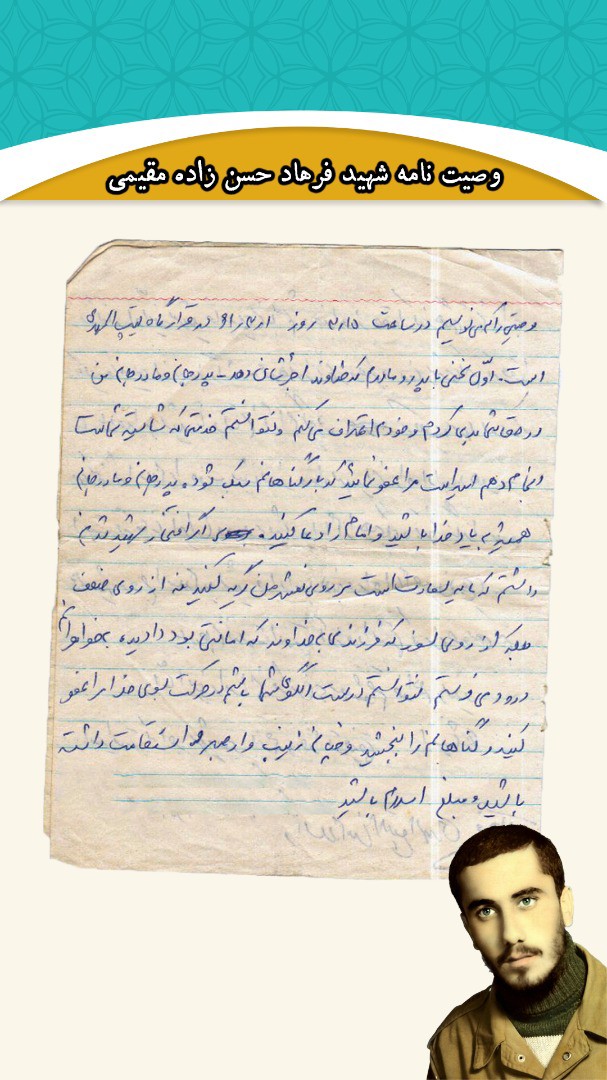 وصیت نامه شهید فرهاد حسن زاده مقیمی
وصیتی را که می نویسم در ساعت ۲٫۱۵ روز در قرارگاه تیپ المهدی
است. اول سخنی با پدر و مادرم که خداوند اجرشان دهد - پدرجان و مادرجان من
در حق شما بدی کردم و خودم اعتراف می کنم و نتوانستم خدمتی که شایسته شماست
انجام دهم امید است مرا عفو نمائید که بار گناهانم سبک شود. پدرجان و مادرجان
همیشه به یاد خدا باشید و امام را دعا کنید. اگر افتخار شهید شدن
داشتم که مایه سعادت است بر روی نعش من گریه کنید نه از روی ضعف
بلکه از روی سوز که فرزندی به خداوند که امانتی بود دادید، به خواهرانم
درود می فرستم نتوانستم درست الگوی شما باشم در حرکت بسوی خدا مرا عفو
کنید و گناهانم را ببخشید و چنان زینب وار صبر و استقامت داشته
باشید و مبلغ اسلام باشید